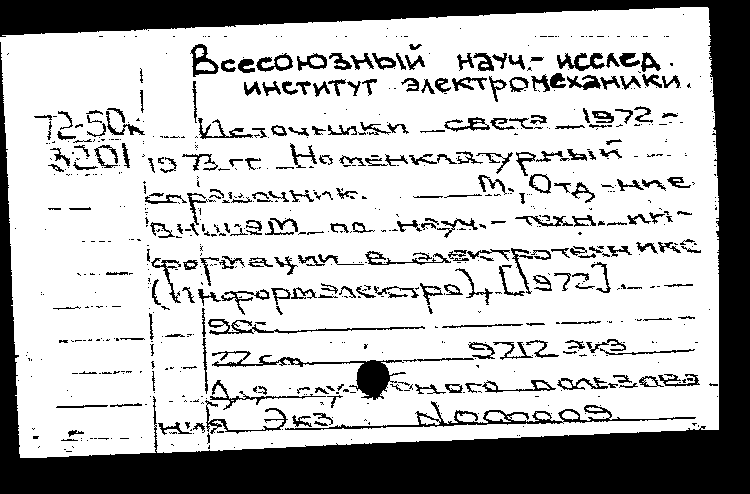 Всесоюзный науч.- исслед.
институт электромеханики.
72-50к Источники света 1972-
3201 1973 гг Номенклатурный
справочник. М., Отд-ние
ВНИИЭМ по науч.- техн. ин-
формации в электротехнике
(Информэлектро), [1972].
90с.
22 cm 9712 экз
Для служебного пользова
ния Экз. N000009